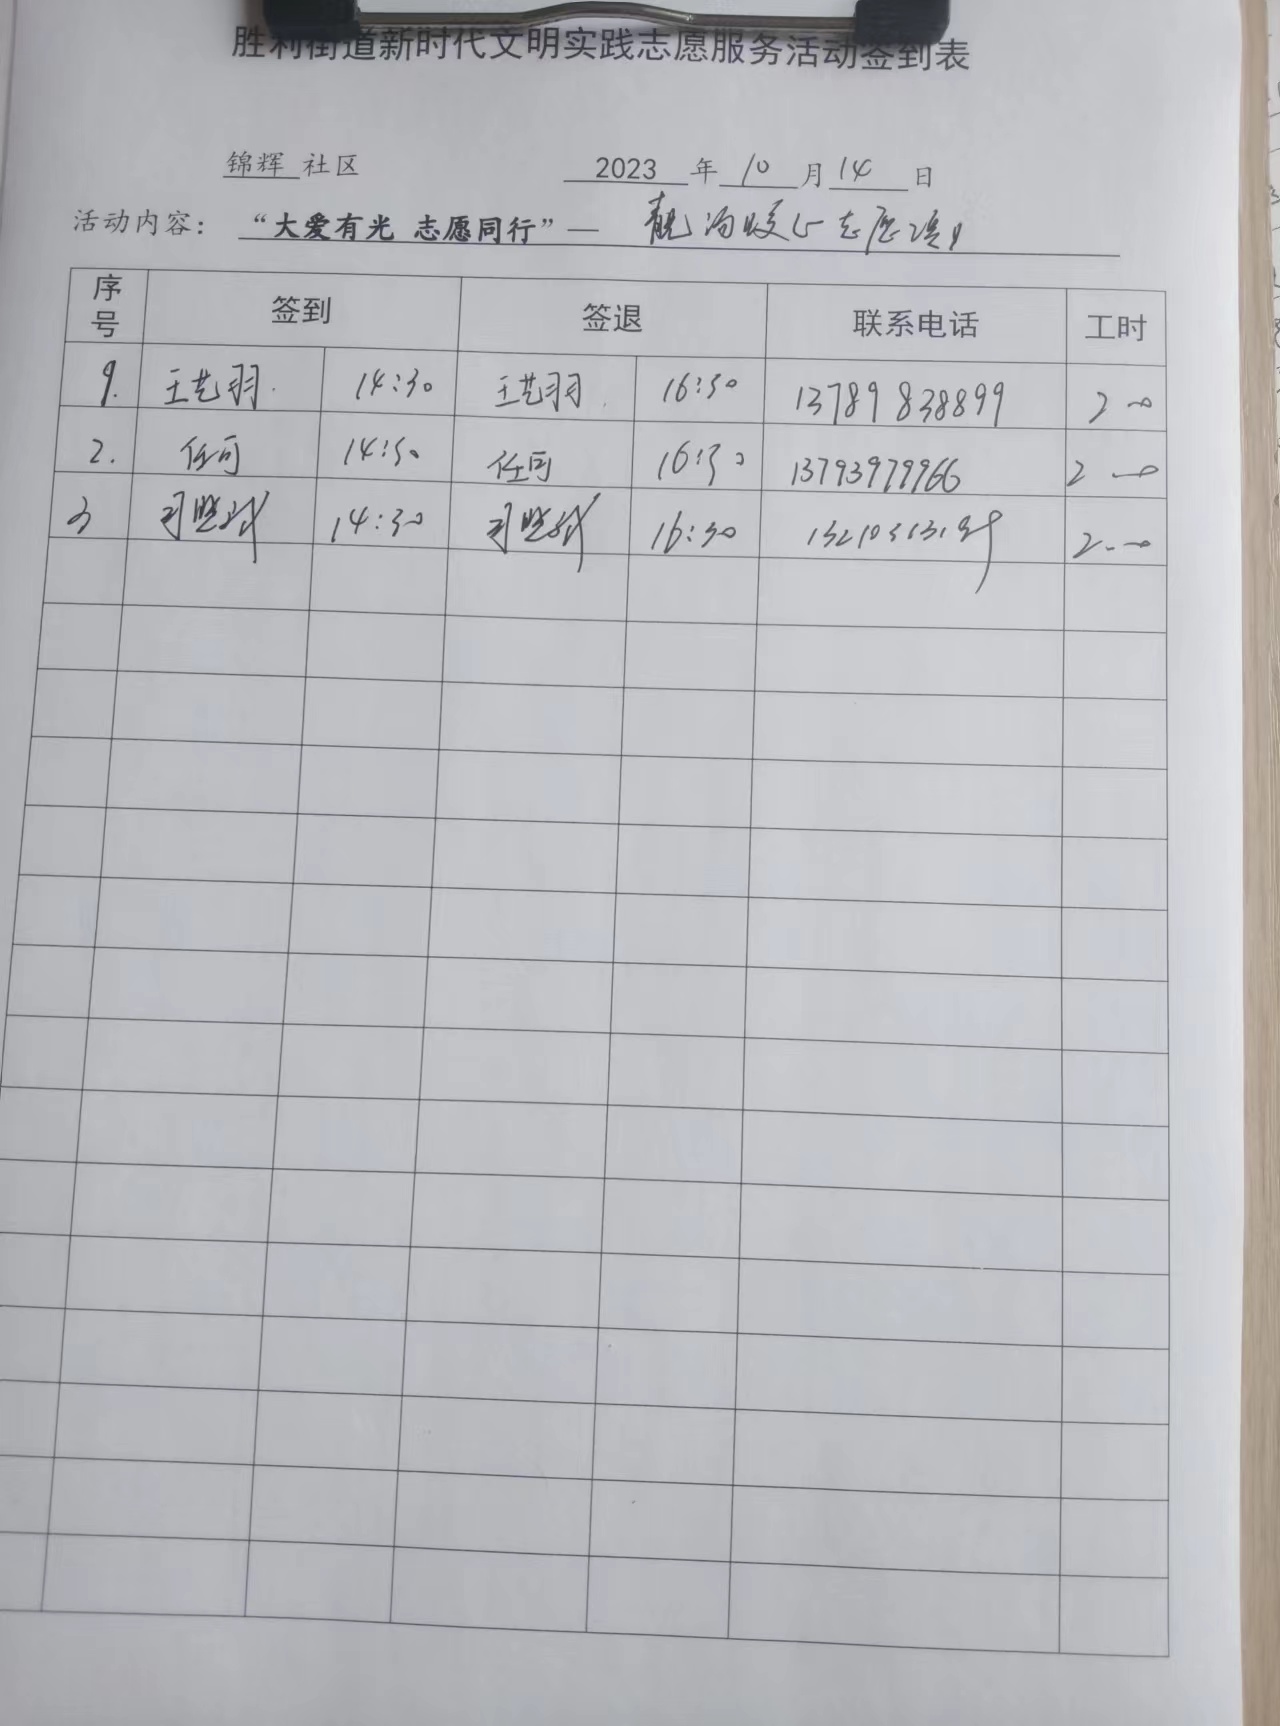 胜利街道新时代文明实践志愿服务活动签到表
锦辉 社区 2023 年 10 月 14 日
活动内容：“大爱有光 志愿同行”— 靓沟暖心志愿项目
序号 签到 签退 联系电话 工时
1. 王艺羽 14:30 王艺羽 16:30 13789838899 2.00
2. 任可 14:30 任可 16:30 13793979966 2.00
3 14:30 16:30 2.00